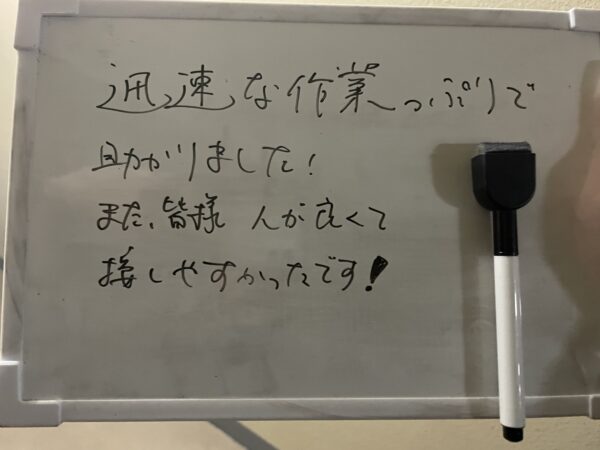 迅速な作業っぷりで
助かりました!
また、皆様 人が良くて
接しやすかったです!